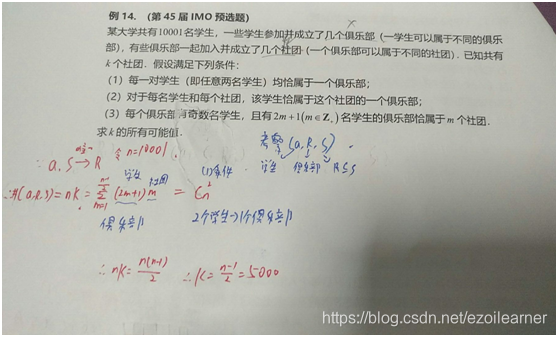 例 14. (第 45 届 IMO 预选题)
某大学共有10001名学生，一些学生参加并成立了几个俱乐部（一学生可以属于不同的俱乐
部），有些俱乐部一起加入并成立了几个社团（一个俱乐部可以属于不同的社团）. 已知共有
k 个社团. 假设满足下列条件：
（1）每一对学生（即任意两名学生）均恰属于一个俱乐部；
（2）对于每名学生和每个社团，该学生恰属于这个社团的一个俱乐部；
（3）每个俱乐部有奇数名学生，且有 2m+1(m∈Z₊) 名学生的俱乐部恰属于 m 个社团.
求 k 的所有可能值.
考察 (a, R, S) .
学生 俱乐部 R∈S
∴ a, S → R 令 n=10001.
学生 社团 (1)条件
∴#(a,R,S) = nK = Σ (2m+1) m = C_n^2
俱乐部 2个学生→1个俱乐部
∴ nK = n(n-1)/2 ∴ K = n-1/2 = 5000
https://blog.csdn.net/ezoilearner